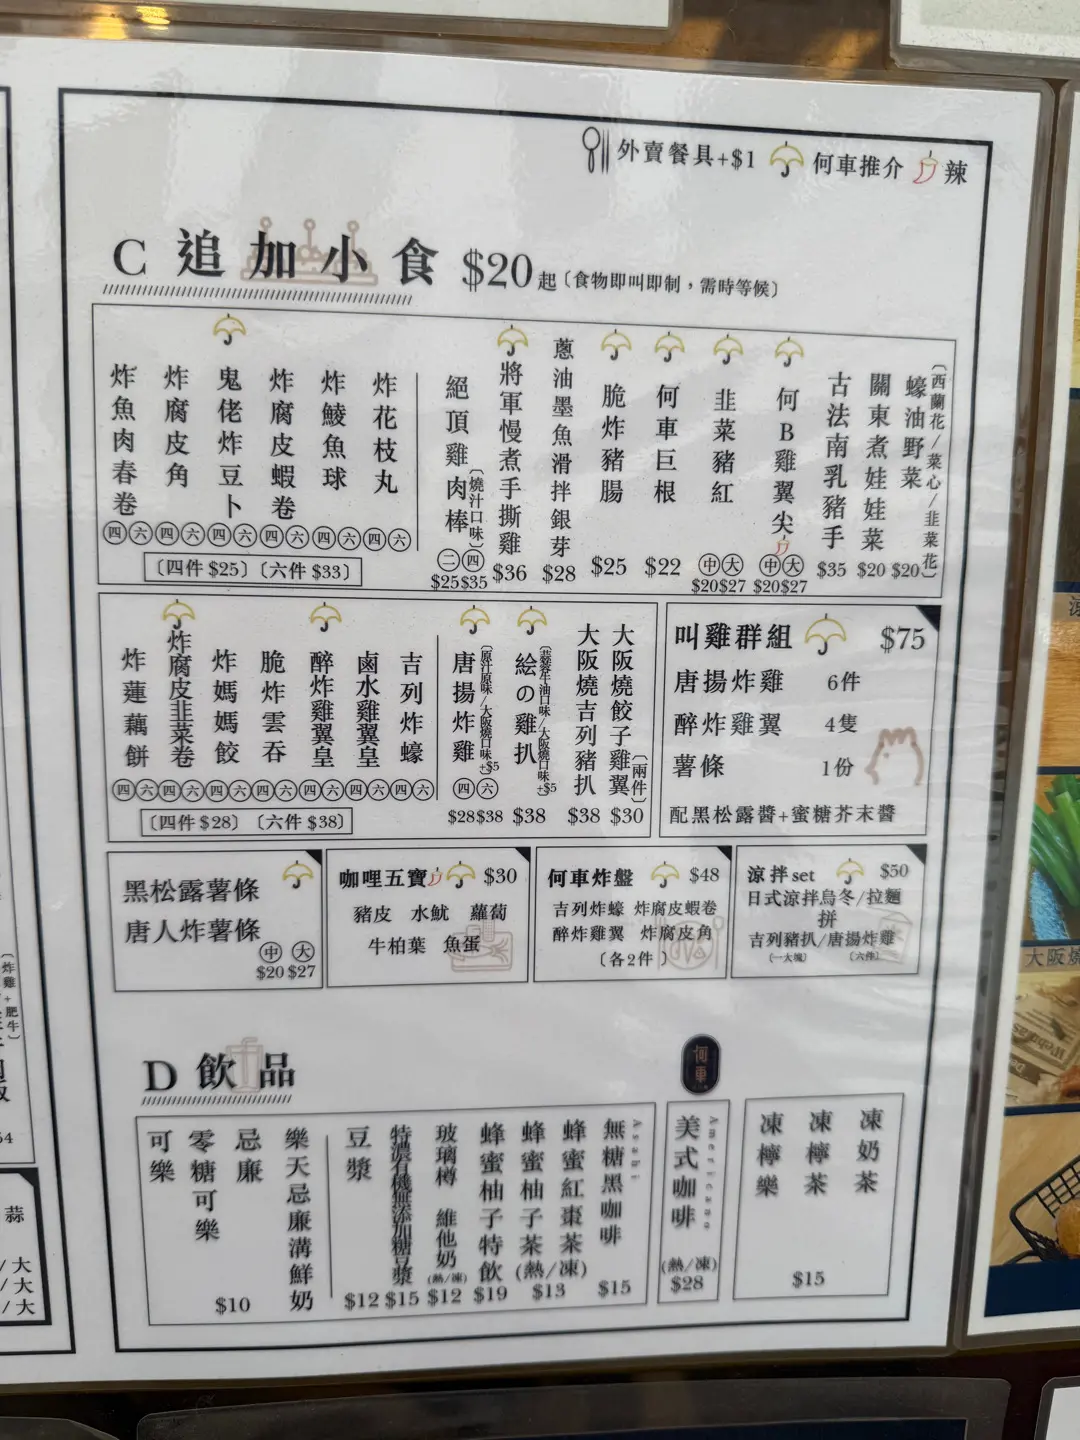 外賣餐具+$1 何車推介 辣
C 追加小食 $20起〔食物即叫即制，需時等候〕
蠔油野菜〔西蘭花/菜心/韭菜花〕 $20
關東煮娃娃菜 $20
古法南乳豬手 $35
何B雞翼尖 中 $20 大 $27
韭菜豬紅 中 $20 大 $27
何車巨根 $22
脆炸豬腸 $25
蔥油墨魚滑拌銀芽 $28
將軍慢煮手撕雞 $36
絕頂雞肉棒〔燒汁口味〕 二 $25 四 $35
炸花枝丸 四 六
炸鯪魚球 四 六
炸腐皮蝦卷 四 六
鬼佬炸豆卜 四 六
炸腐皮角 四 六
炸魚肉春卷 四 六
〔四件 $25〕〔六件 $33〕
大阪燒餃子雞翼〔兩件〕 $30
大阪燒吉列豬扒 $38
絵の雞扒 $38
唐揚炸雞〔原汁原味/大阪燒口味+$5〕 四 $28 六 $38
吉列炸蠔 四 六
鹵水雞翼皇 四 六
醉炸雞翼皇 四 六
脆炸雲吞 四 六
炸媽媽餃 四 六
炸腐皮韭菜卷 四 六
炸蓮藕餅 四 六
〔四件 $28〕〔六件 $38〕
叫雞群組 $75
唐揚炸雞 6件
醉炸雞翼 4隻
薯條 1份
配黑松露醬+蜜糖芥末醬
黑松露薯條
唐人炸薯條
中 大
$20 $27
咖哩五寶 $30
豬皮 水魷 蘿蔔
牛柏葉 魚蛋
何車炸盤 $48
吉列炸蠔 炸腐皮蝦卷
醉炸雞翼 炸腐皮角
〔各2件〕
涼拌set $50
日式涼拌烏冬/拉麵
拼
吉列豬扒/唐揚炸雞
(一大塊) (六件)
D 飲品
何車
凍奶茶
凍檸茶
凍檸樂
$15
美式咖啡 Americano
(熱/凍)
$28
無糖黑咖啡 Asahi $15
蜂蜜紅棗茶
蜂蜜柚子茶
(熱/凍)
$13
蜂蜜柚子特飲 $19
玻璃樽 維他奶 (熱/凍) $12
特濃有機無添加糖豆漿 $15
豆漿 $12
樂天忌廉溝鮮奶
忌廉
零糖可樂
可樂
$10
〔炸雞+肥牛〕
蒜
/大
/大
/大
大阪燒